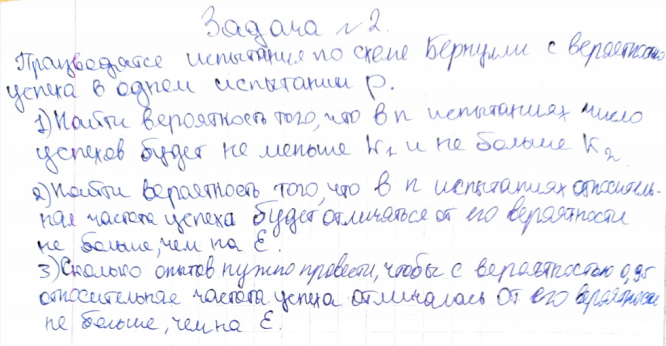 Задача №2.
Производятся испытания по схеме Бернулли с вероятностью
успеха в одном испытании p.
1) Найти вероятность того, что в n испытаниях число
успехов будет не меньше k1 и не больше k2.
2) Найти вероятность того, что в n испытаниях относитель-
ная частота успеха будет отличаться от его вероятности
не больше, чем на ε.
3) Сколько опытов нужно провести, чтобы с вероятностью 0,95
относительная частота успеха отличалась от его вероятности
не больше, чем на ε.